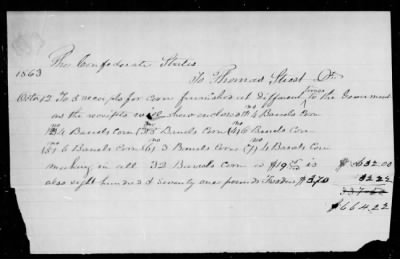 The Confederate States
1863 To Thomas Street Dr
Octr 12 To 8 receipts for Corn furnished at different times to the Government
as the receipts will show enclosed No 1 4 Barrels Corn
No 2 4 Barrels Corn No 3 5 Barrels Corn No 4 6 Barrels Corn
No 5 6 Barrels Corn No 6 3 Barrels Corn No 7 4 Barrels Corn
making in all 32 Barrels Corn is
also eight hundred & seventy one pounds Fodder
$632.00
32.22
$664.22